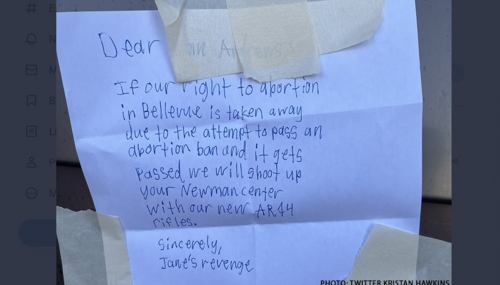 Dear
If our right to abortion
in Bellevue is taken away
due to the attempt to pass an
abortion ban and it gets
passed we will shoot up
your Newman center
with our new AR14
rifles.
Sincerely,
Jane's revenge
PHOTO: TWITTER KRISTAN HAWKINS